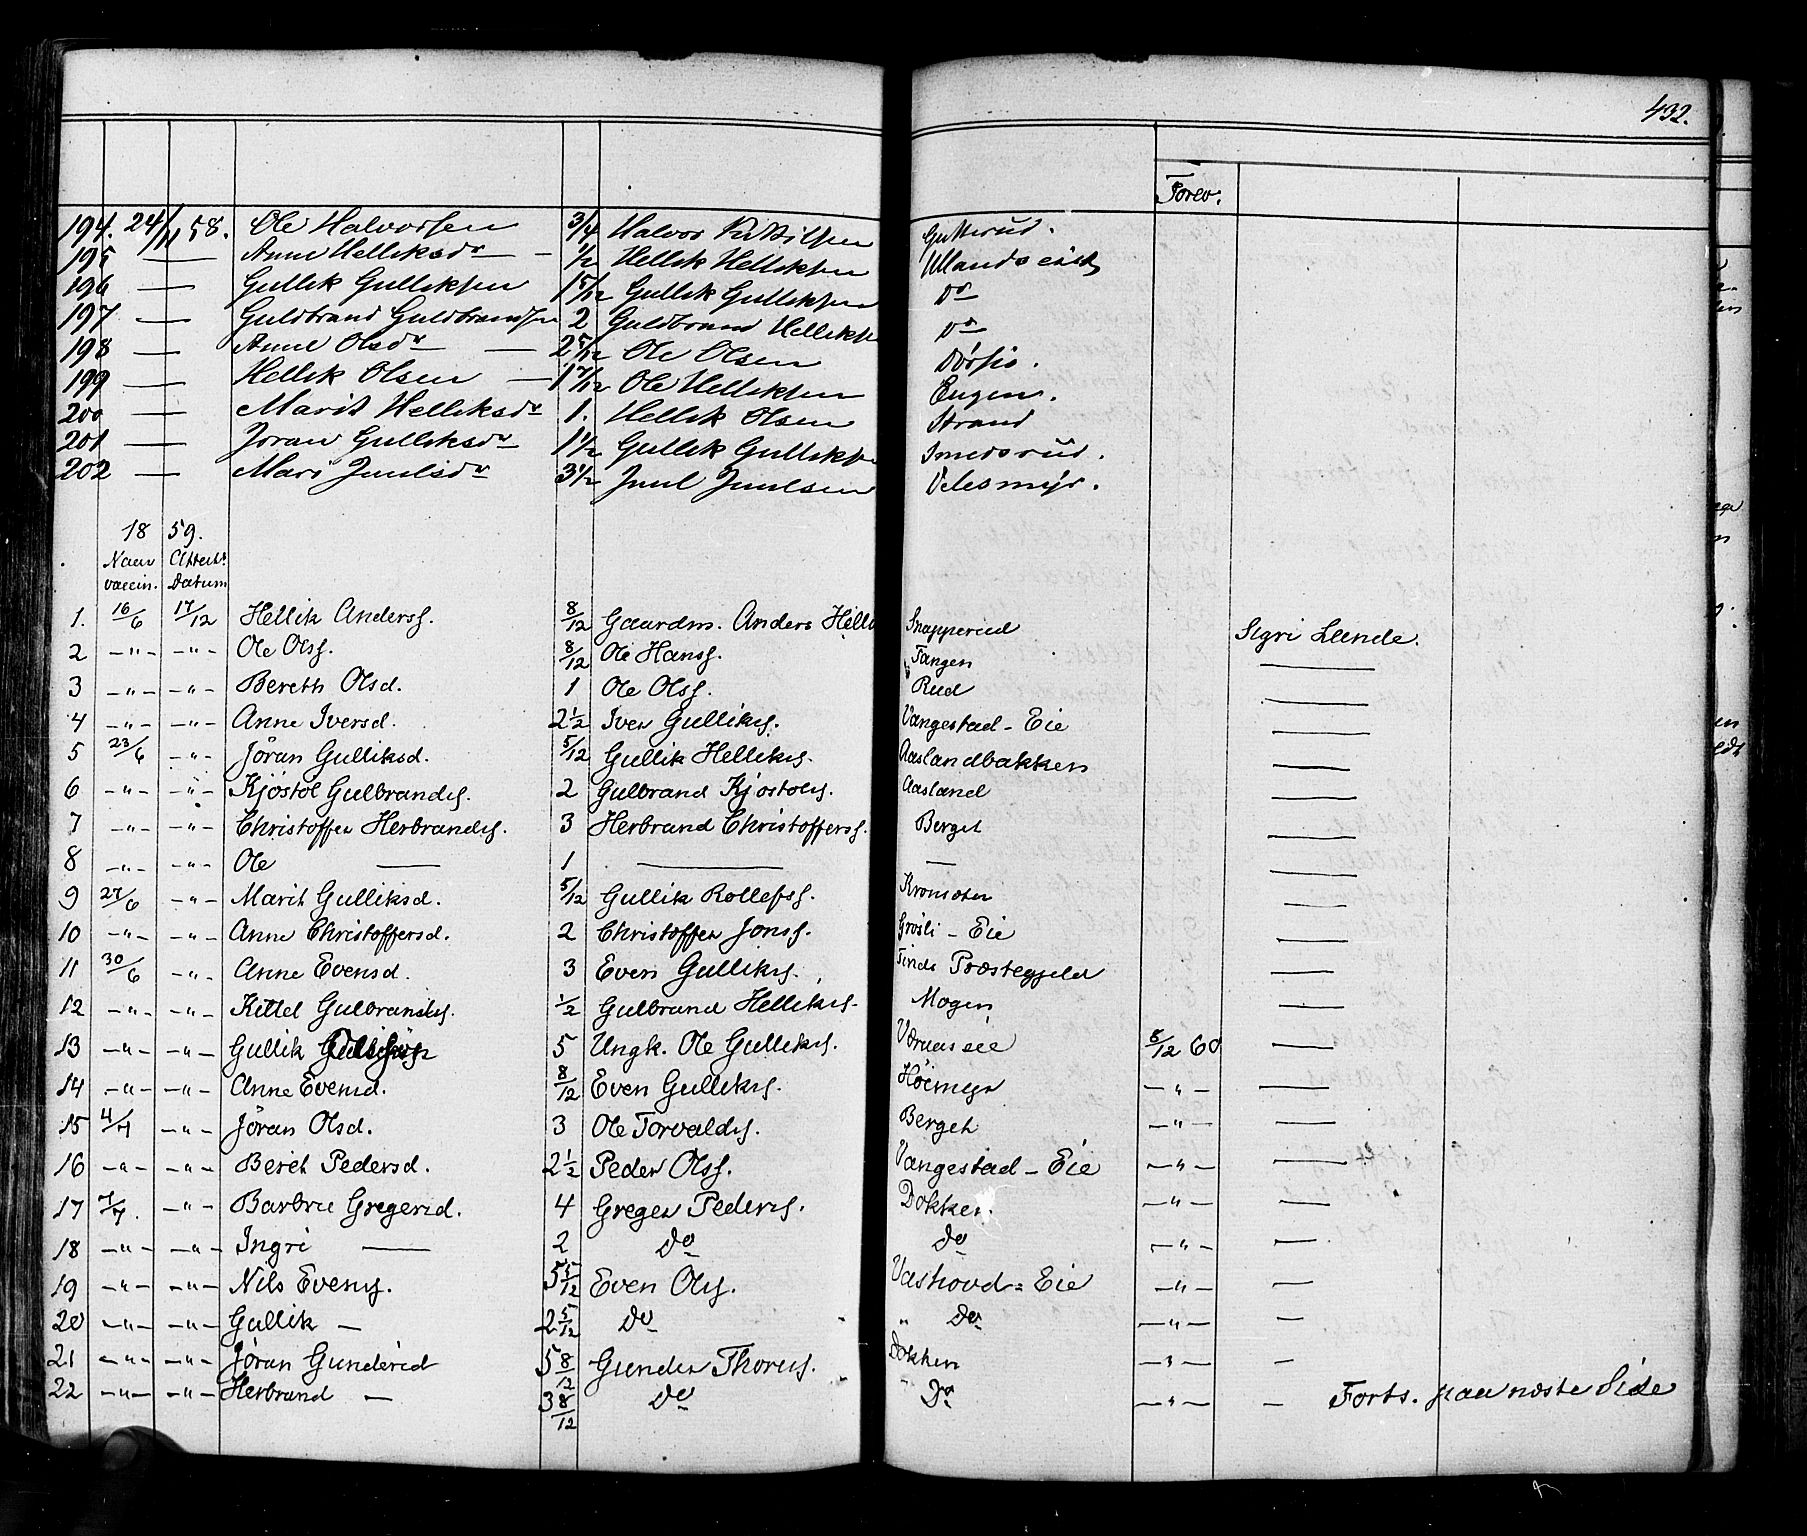 432.
Forev.
194. 24/11 58. Ole Halvorsen 3/4 Halvor Kittilsen Gutterud.
195 — Anne Helliksdr — 1/2 Hellik Helliksen Ullandseiet
196 — Gullik Gulliksen 1 5/12 Gullik Gulliksen Do
197 — Guldbrand Guldbrandsen 2 Guldbrand Helliksen Do
198 — Anne Olsdr — 2 5/12 Ole Olsen
199 — Hellik Olsen — 1 7/12 Ole Helliksen Engen.
200 — Marit Helliksdr 1. Hellik Olsen Strand
201 — Jøran Gulliksdr 1 1/2 Gullik Gulliksen Smedsrud.
202 — Mari Juulsdr 3 1/2 Juul Juulsen Velesmyr.
18 59.
Naar vaccin. Attest. Datum
1. 16/6 17/12 Hellik Anders. 8/12 Gaardm. Anders Hell Snapperud Sigri Lunde.
2 -"- -"- Ole Ols. 8/12 Ole Hans. Tangen —
3 -"- -"- Bereth Olsd. 1 Ole Ols. Rud —
4 -"- -"- Anne Iversd. 2 1/2 Iver Gulliks. Vangestad - Eie —
5 23/6 -"- Jöran Gulliksd. 5/12 Gullik Helliks. Aaslandbakken —
6 -"- -"- Kjöstol Gulbrands. 2 Gulbrand Kjöstols. Aasland —
7 -"- -"- Christoffer Herbrands. 3 Herbrand Christoffers. Berget —
8 -"- -"- Ole — 1 — — —
9 27/6 -"- Marit Gulliksd. 5/12 Gullik Rollefs. Kromoten —
10 -"- -"- Anne Christoffersd. 2 Christoffer Jons. Grösli - Eie —
11 30/6 -"- Anne Evensd. 3 Even Gulliks. Tinds Præstegjeld —
12 -"- -"- Kittel Gulbrands. 1/2 Gulbrand Helliks. Mogen —
13 -"- -"- Gullik 5 Ungk. Ole Gulliks. Værnes eie 8/12 60 —
14 -"- -"- Anne Evensd. 8/12 Even Gulliks. Höimyr -"- —
15 4/7 -"- Jöran Olsd. 3 Ole Torvalds. Berget -"- —
16 -"- -"- Beret Pedersd. 2 1/2 Peder Ols. Vangestad - Eie -"- —
17 7/7. -"- Barbrie Gregersd. 4 Greger Peders. Dokken. -"- —
18 -"- -"- Ingri — 2 Do Do -"- —
19 -"- -"- Nils Evens. 5 5/12 Even Ols. Vashovd = Eie -"- —
20 -"- -"- Gullik — 2 5/12 Do " Do -"- —
21 -"- -"- Jöran Gundersd 5 8/12 Gunder Thores. Dokken -"- —
22 -"- -"- Herbrand — 3 8/12 Do " Do -"- — Forts. paa næste Side